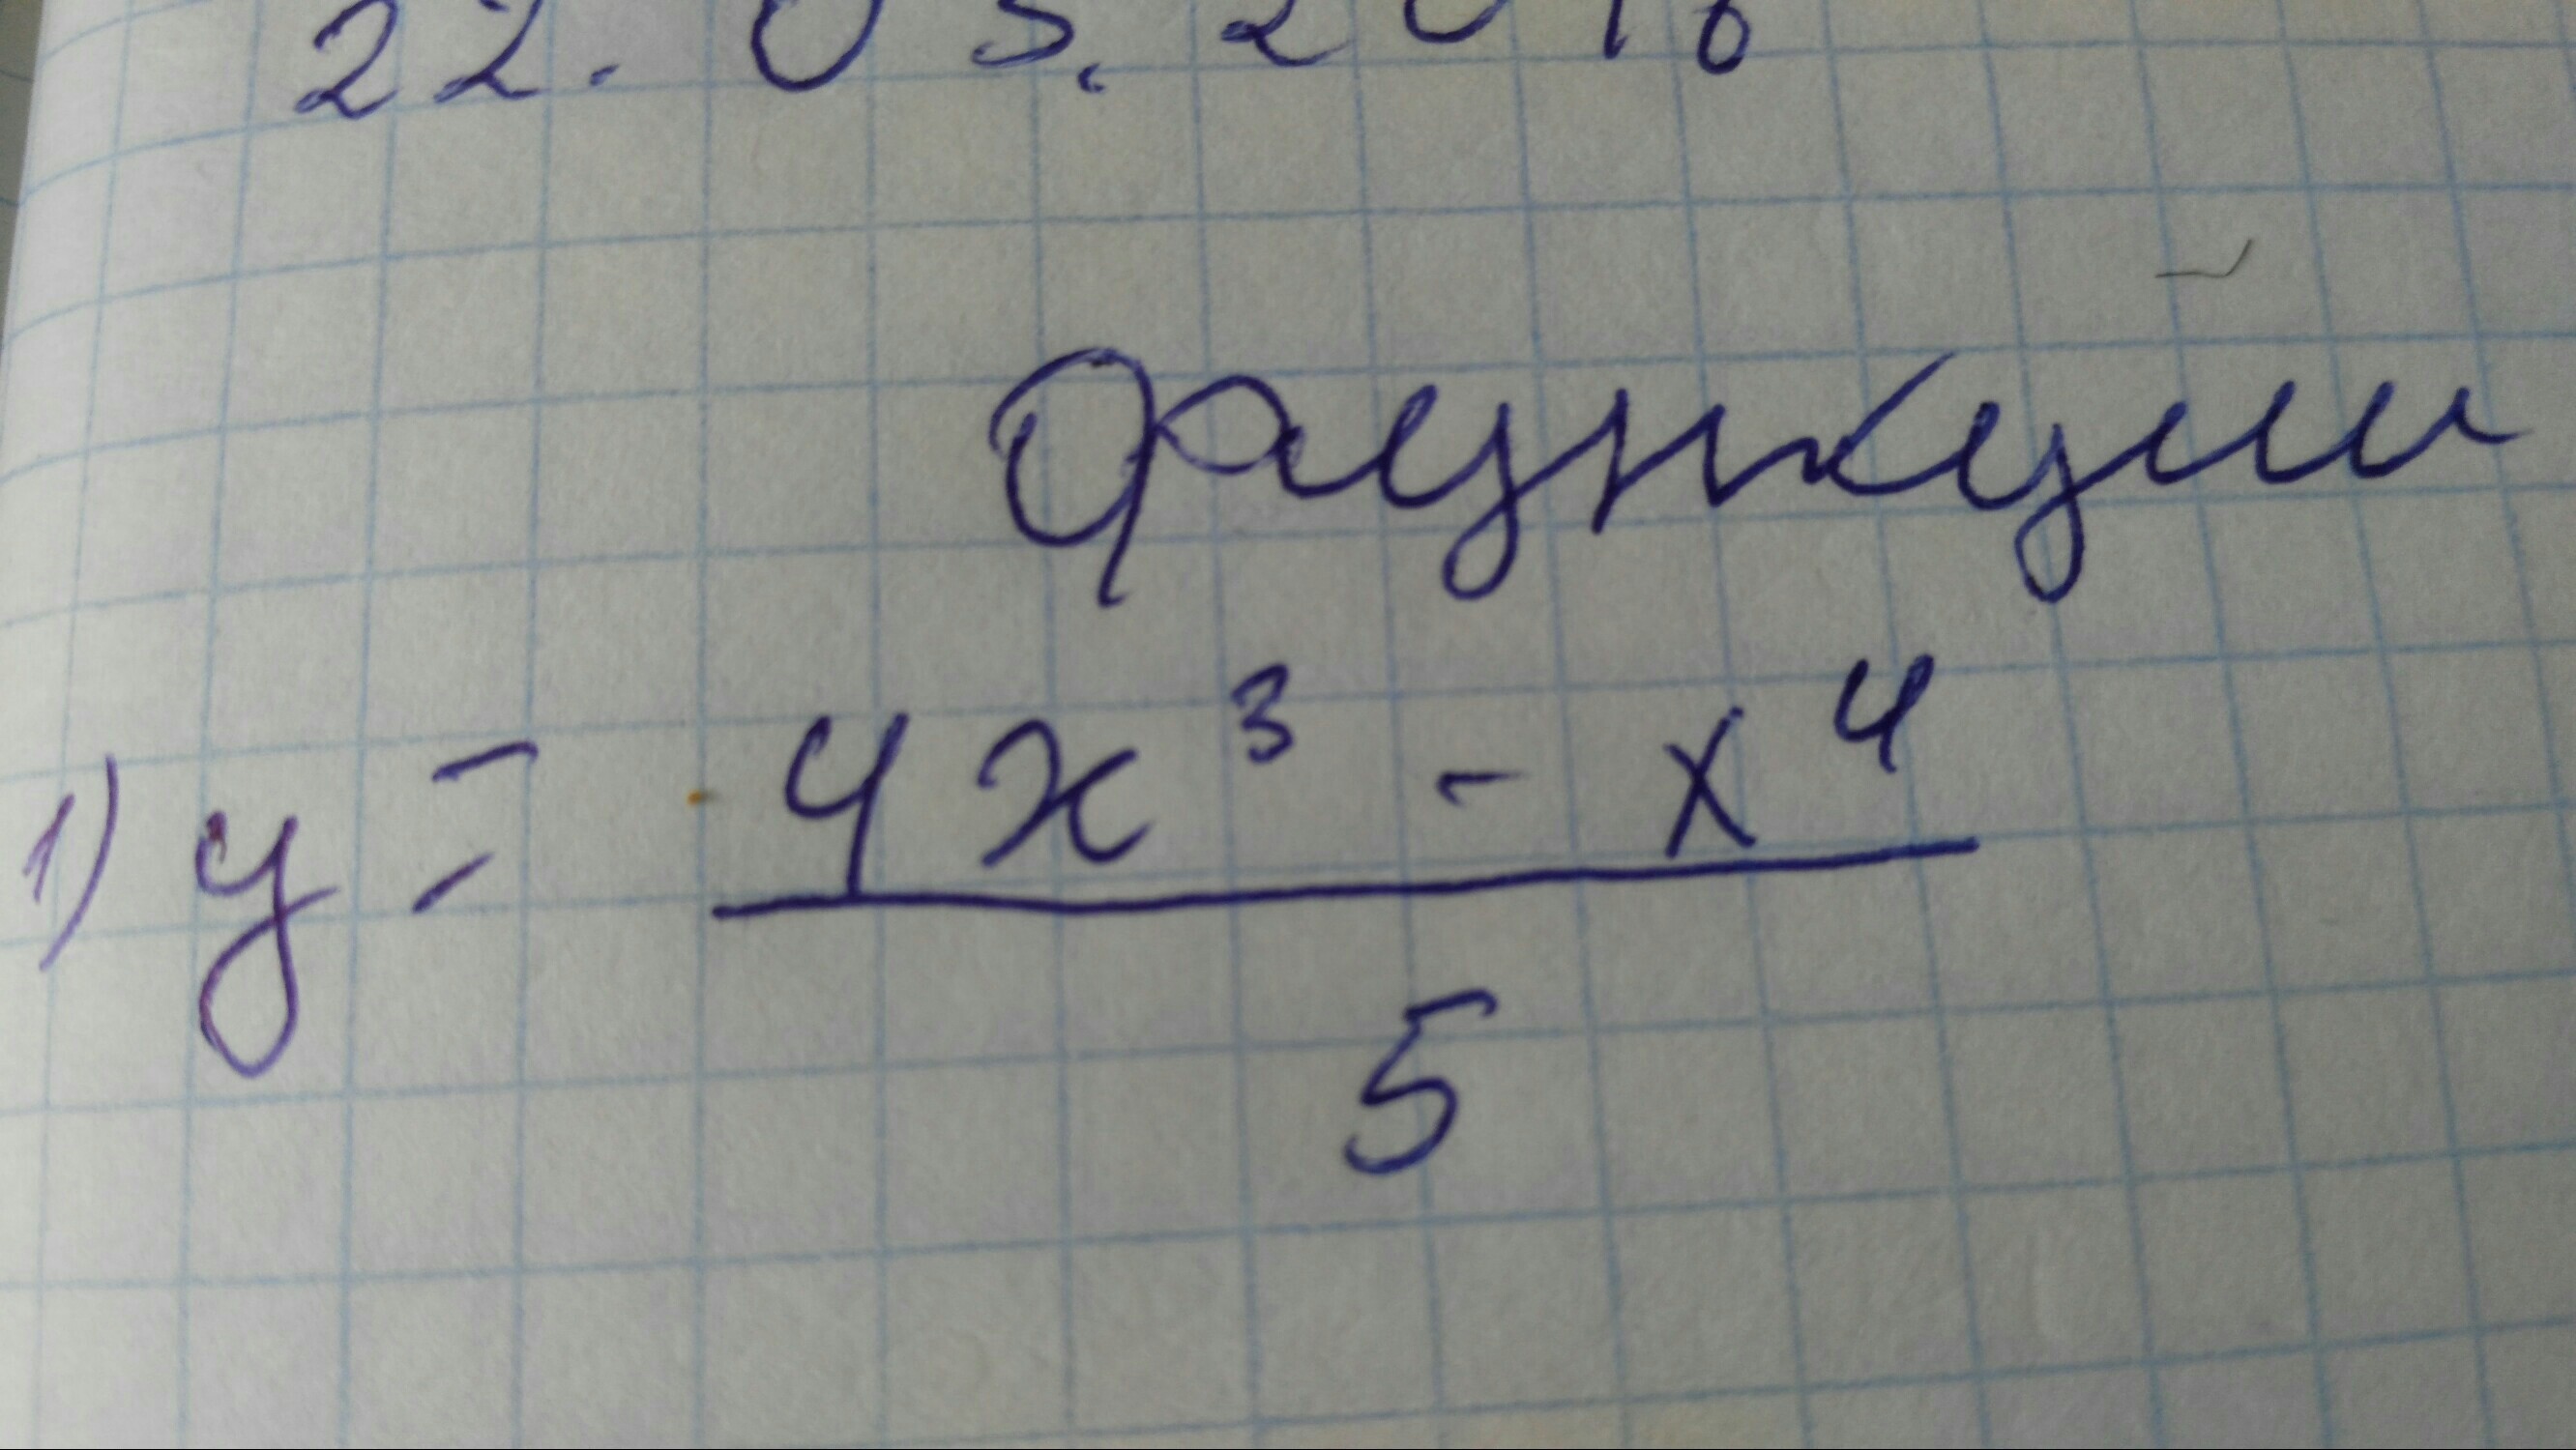 22. 03. 2018
Функции
1) y = 4x³ - x⁴
5